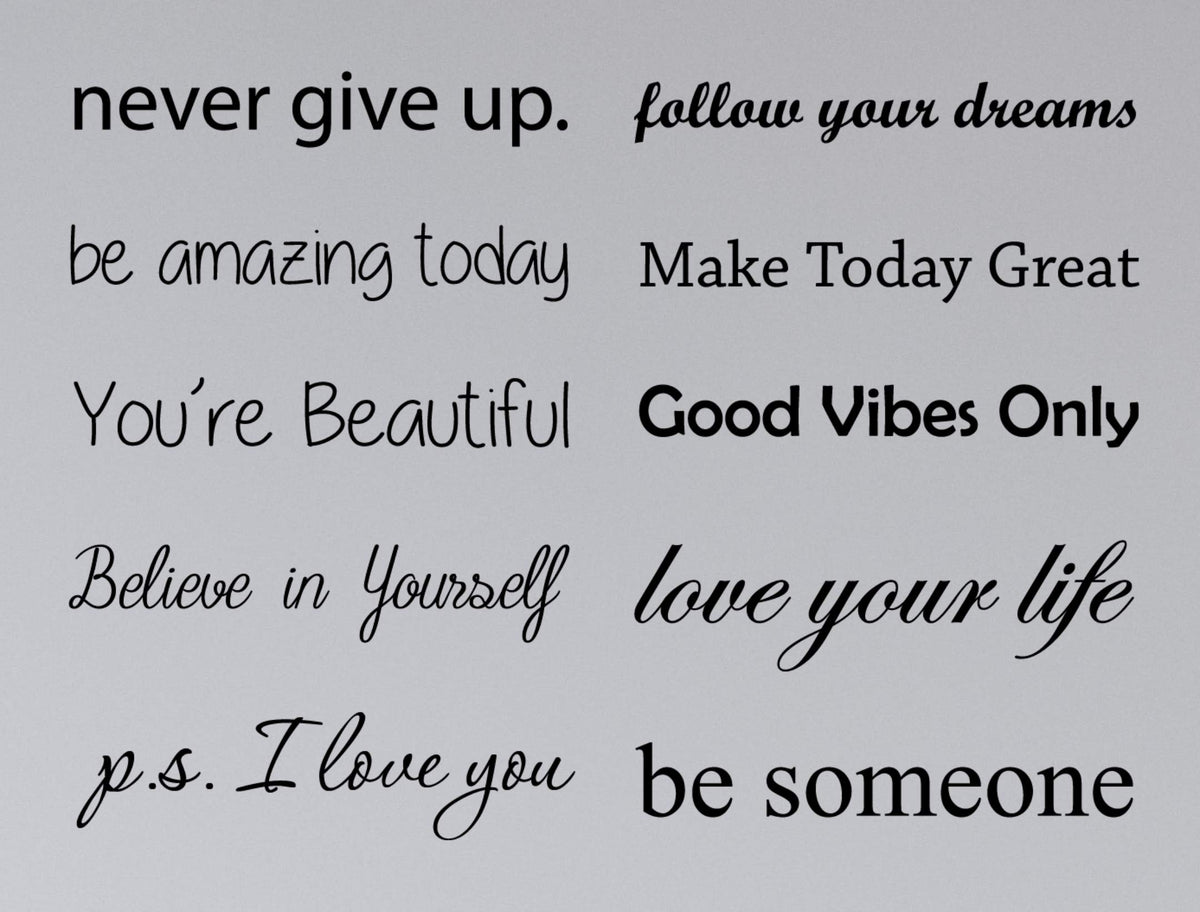 never give up.
follow your dreams
be amazing today
Make Today Great
You're Beautiful
Good Vibes Only
Believe in Yourself
love your life
p.s. I love you
be someone